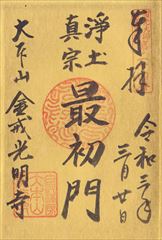 奉拝
令和三年
三月廿日
浄土
真宗
最初門
大本山
金戒光明寺